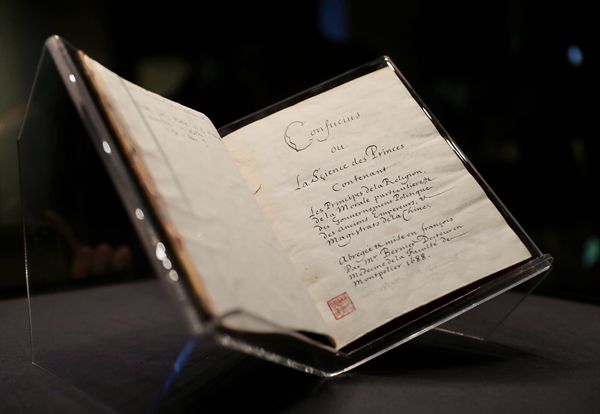 Confucius
ou
La Science des Princes
Contenant
Les Principes de la Religion,
de la Morale particuliere,
du Gouvernement Politique
des anciens Empereurs, &
Magistrats de la Chine.
Abregée & mise en françois
Par Mr Bernier Docteur en
Medecine de la Faculté de
Montpelier 1688.